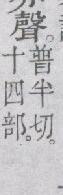 亦聲。
普半切。
十四部。